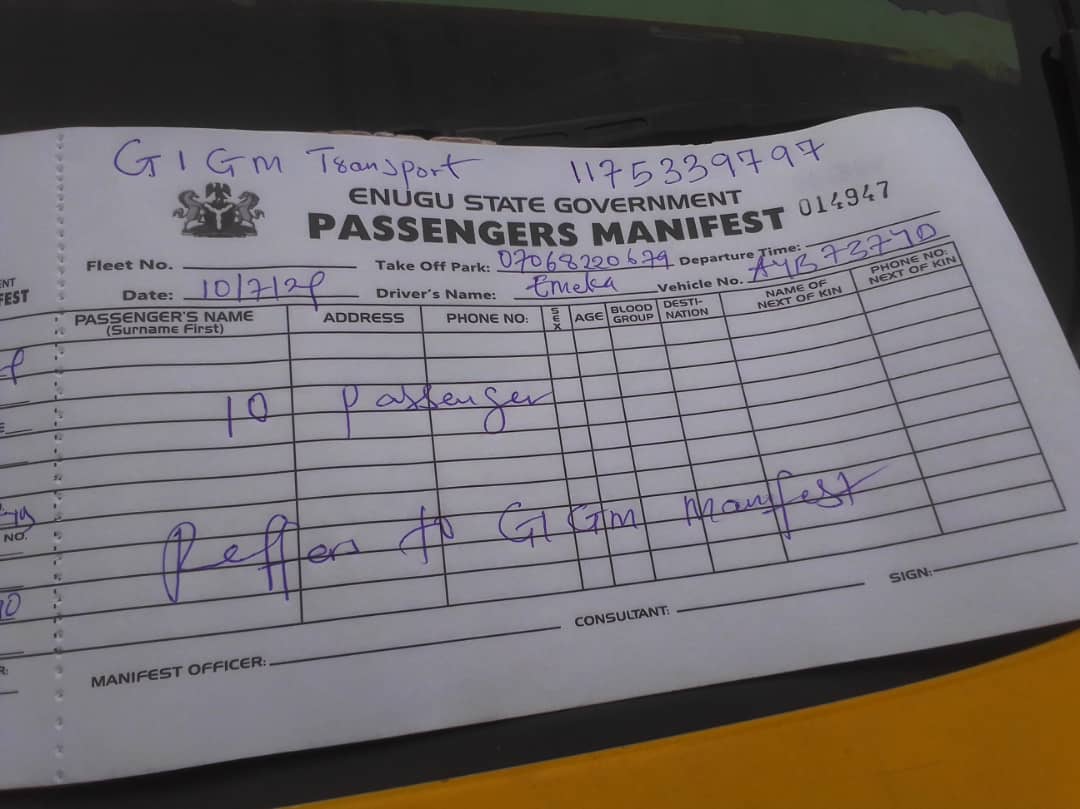 GIGM Transport 1175339797
ENUGU STATE GOVERNMENT
PASSENGERS MANIFEST 014947
Fleet No. Take Off Park: 07068220679 Departure Time:
Date: 10/7/2 Driver's Name: Emeka Vehicle No. AYB 737YD
PASSENGER'S NAME (Surname First) ADDRESS PHONE NO: SEX AGE BLOOD GROUP DESTI-NATION NAME OF NEXT OF KIN PHONE NO: NEXT OF KIN
10 Passenger
Reffer to GIGM Manifest
MANIFEST OFFICER: CONSULTANT: SIGN:
ENT
FEST
NO.
R: